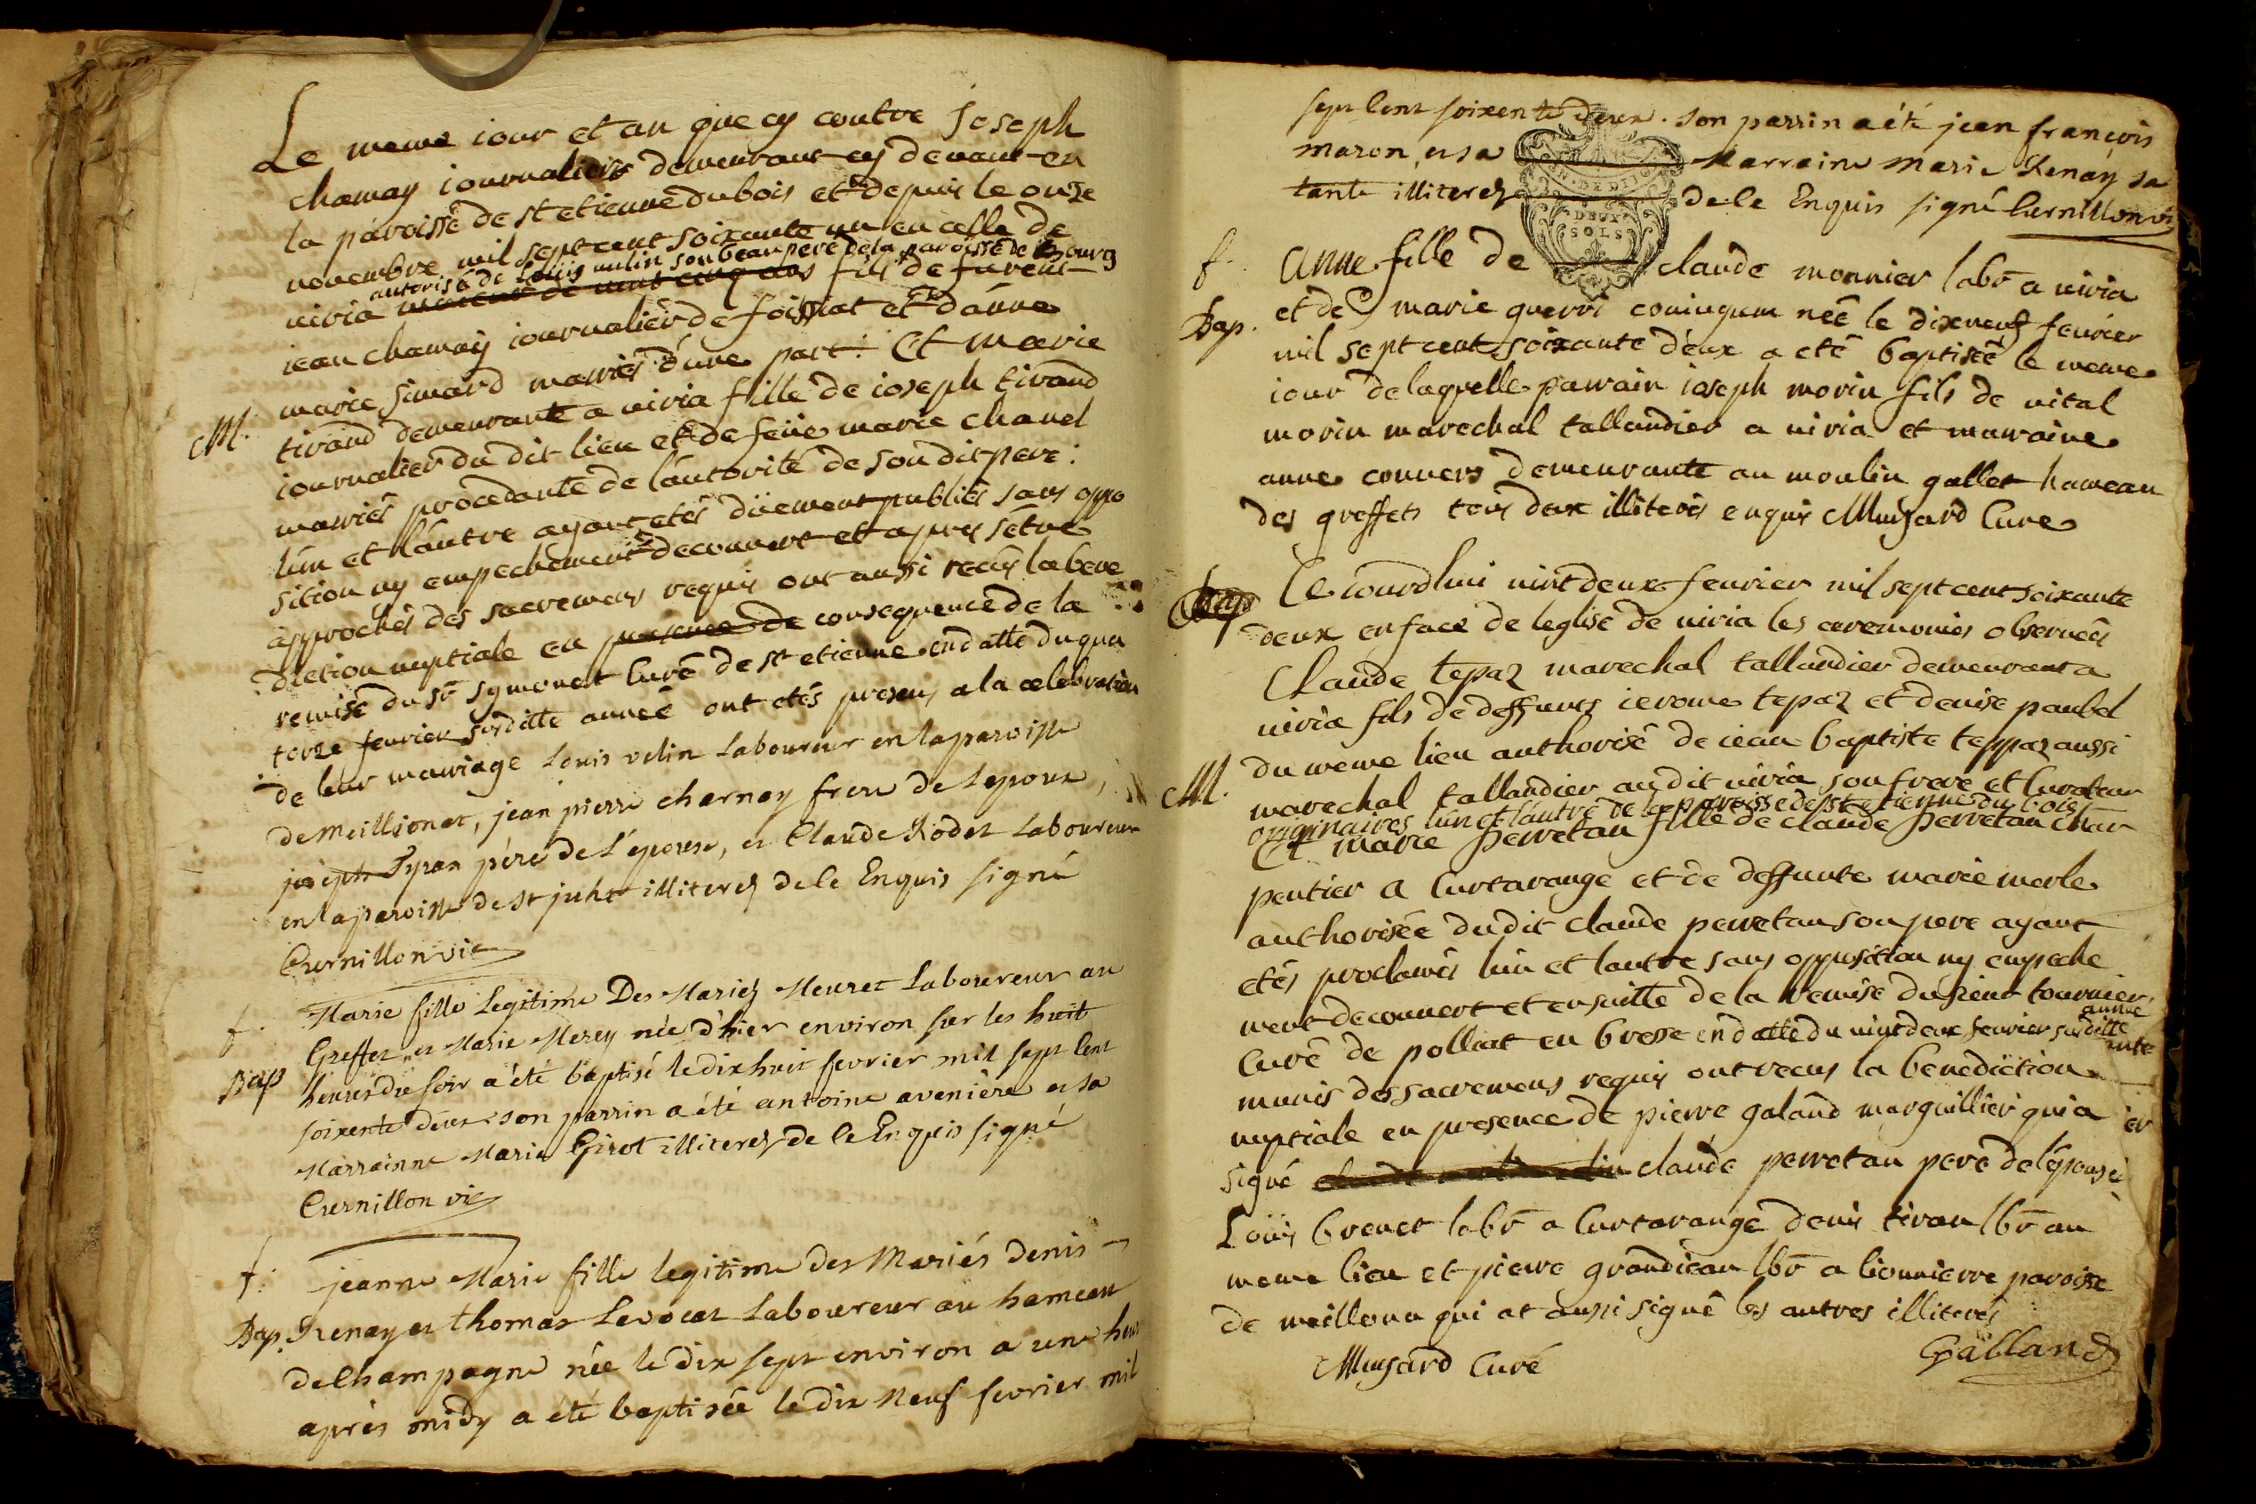 Le meme iour et an que cy contre Joseph
chamay iournaliere demeurant cy devant en
la paroisse de st etienne du bois et depuis le onze
novembre mil sept cent soixante un en celle de
autorisé de Loüis uulin son beau pere de la paroisse de Bourg
viria fils de fureur
iean chamay iournalier de foissiat et d'anne
marie Simard mariés d'une part : Et marie
M. tirand demeurante a viria fille de ioseph tirand
iournalier du dit lieu et de feüe marie chanel
mariés procedante de l'autorité de son dit pere :
lun et l'autre ayant etés düement publiés sans oppo
sition ny empechement decouvert et apres sétre
approchés des sacremens requis ont aussi recüs la bene
diction nuptiale en presence de consequence de la
remise du sr symonet Curé de st etienne en datte du qua
torze fevrier susditte année ont etés presens a la celebration
de leur mariage Louis vulin Laboureur en la paroisse
de Meillionat, jean pierre charnay frere de Lepoux,
joseph Tyran père de L'épouse, et Claude Rodet Laboureur
en la paroisse de st just illiterez de ce Enquis signé
Curnillon vic
f. Marie fille Legitime Des Mariez Meuret Laboureur au
Greffet et Marie Merey née d'hier environ sur les huit
Bap heures du soir a été baptisé le dix huit fevrier mil sept Cent
soixente deux son parrin a été antoine aveniere et sa
Marrainne Marie Girot illiterez de ce Enquis signé
Curnillon vic
f. jeanne Marie fille legitime des Mariés denis
Bap. Renay et thomas Levocat Laboureur au hameau
de Champagne née le dix sept environ a une heure
après midy a été baptisée le dix Neuf fevrier mil
sept Cent soixente deux. son parrin a été jean françois
maron, et sa Marraine Marie Renay sa
tante illiterez de ce Enquis signé Curnillon vic
GN. DE DIJON
DEUX
SOLS
f. Anne fille de claude monnier labr a viria
et de marie querri coniugum née le dixneuf fevrier
Bap. mil sept cent soixante deux a eté baptisée le meme
iour de laquelle parrain ioseph morin fils de vital
morin marechal tallandier a viria et marraine
anne convers demeurante au moulin gallet hameau
des greffets tous deux illiterés enquis Muzard Cure
Bap Ce iourdhui vint deux fevrier mil sept cent soixante
deux en face de leglise de viria les ceremonies observeés
Claude tepaz marechal tallandier demeurant a
viria fils de deffunts ierome tepaz et denise paubel
du meme lieu authorisé de iean baptiste teppaz aussi
M. marechal tallandier audit viria son frere et Curateur
originaires lun et lautre de la paroisse de st etienne du bois
Et marie perretan fille de claude perretan char
pentier a Curtarange et de deffunte marie merle
authorisée du dit claude perretan son pere ayant
etés proclamés lun et lautre sans opposition ny empeche
ment decouvert et ensuitte de la remise du sieur tournier
Curé de polliat en bresse en datte du vint deux fevrier susditte
année
munis des sacremens requis ont recus la benediction
nuptiale en presence de pierre galand marguillier qui a
signé claude perretan pere de lépouse
Loüis brevet labr a Curtarange denis tiran lbr au
meme lieu et pierre grandiean lbr a lionnierre paroisse
de meillona qui at aussi signé les autres illiterés
Muzard Curé Galland